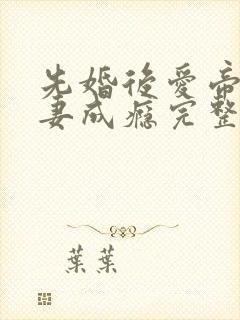 先婚後愛帝
妻成癮完整
葉葉